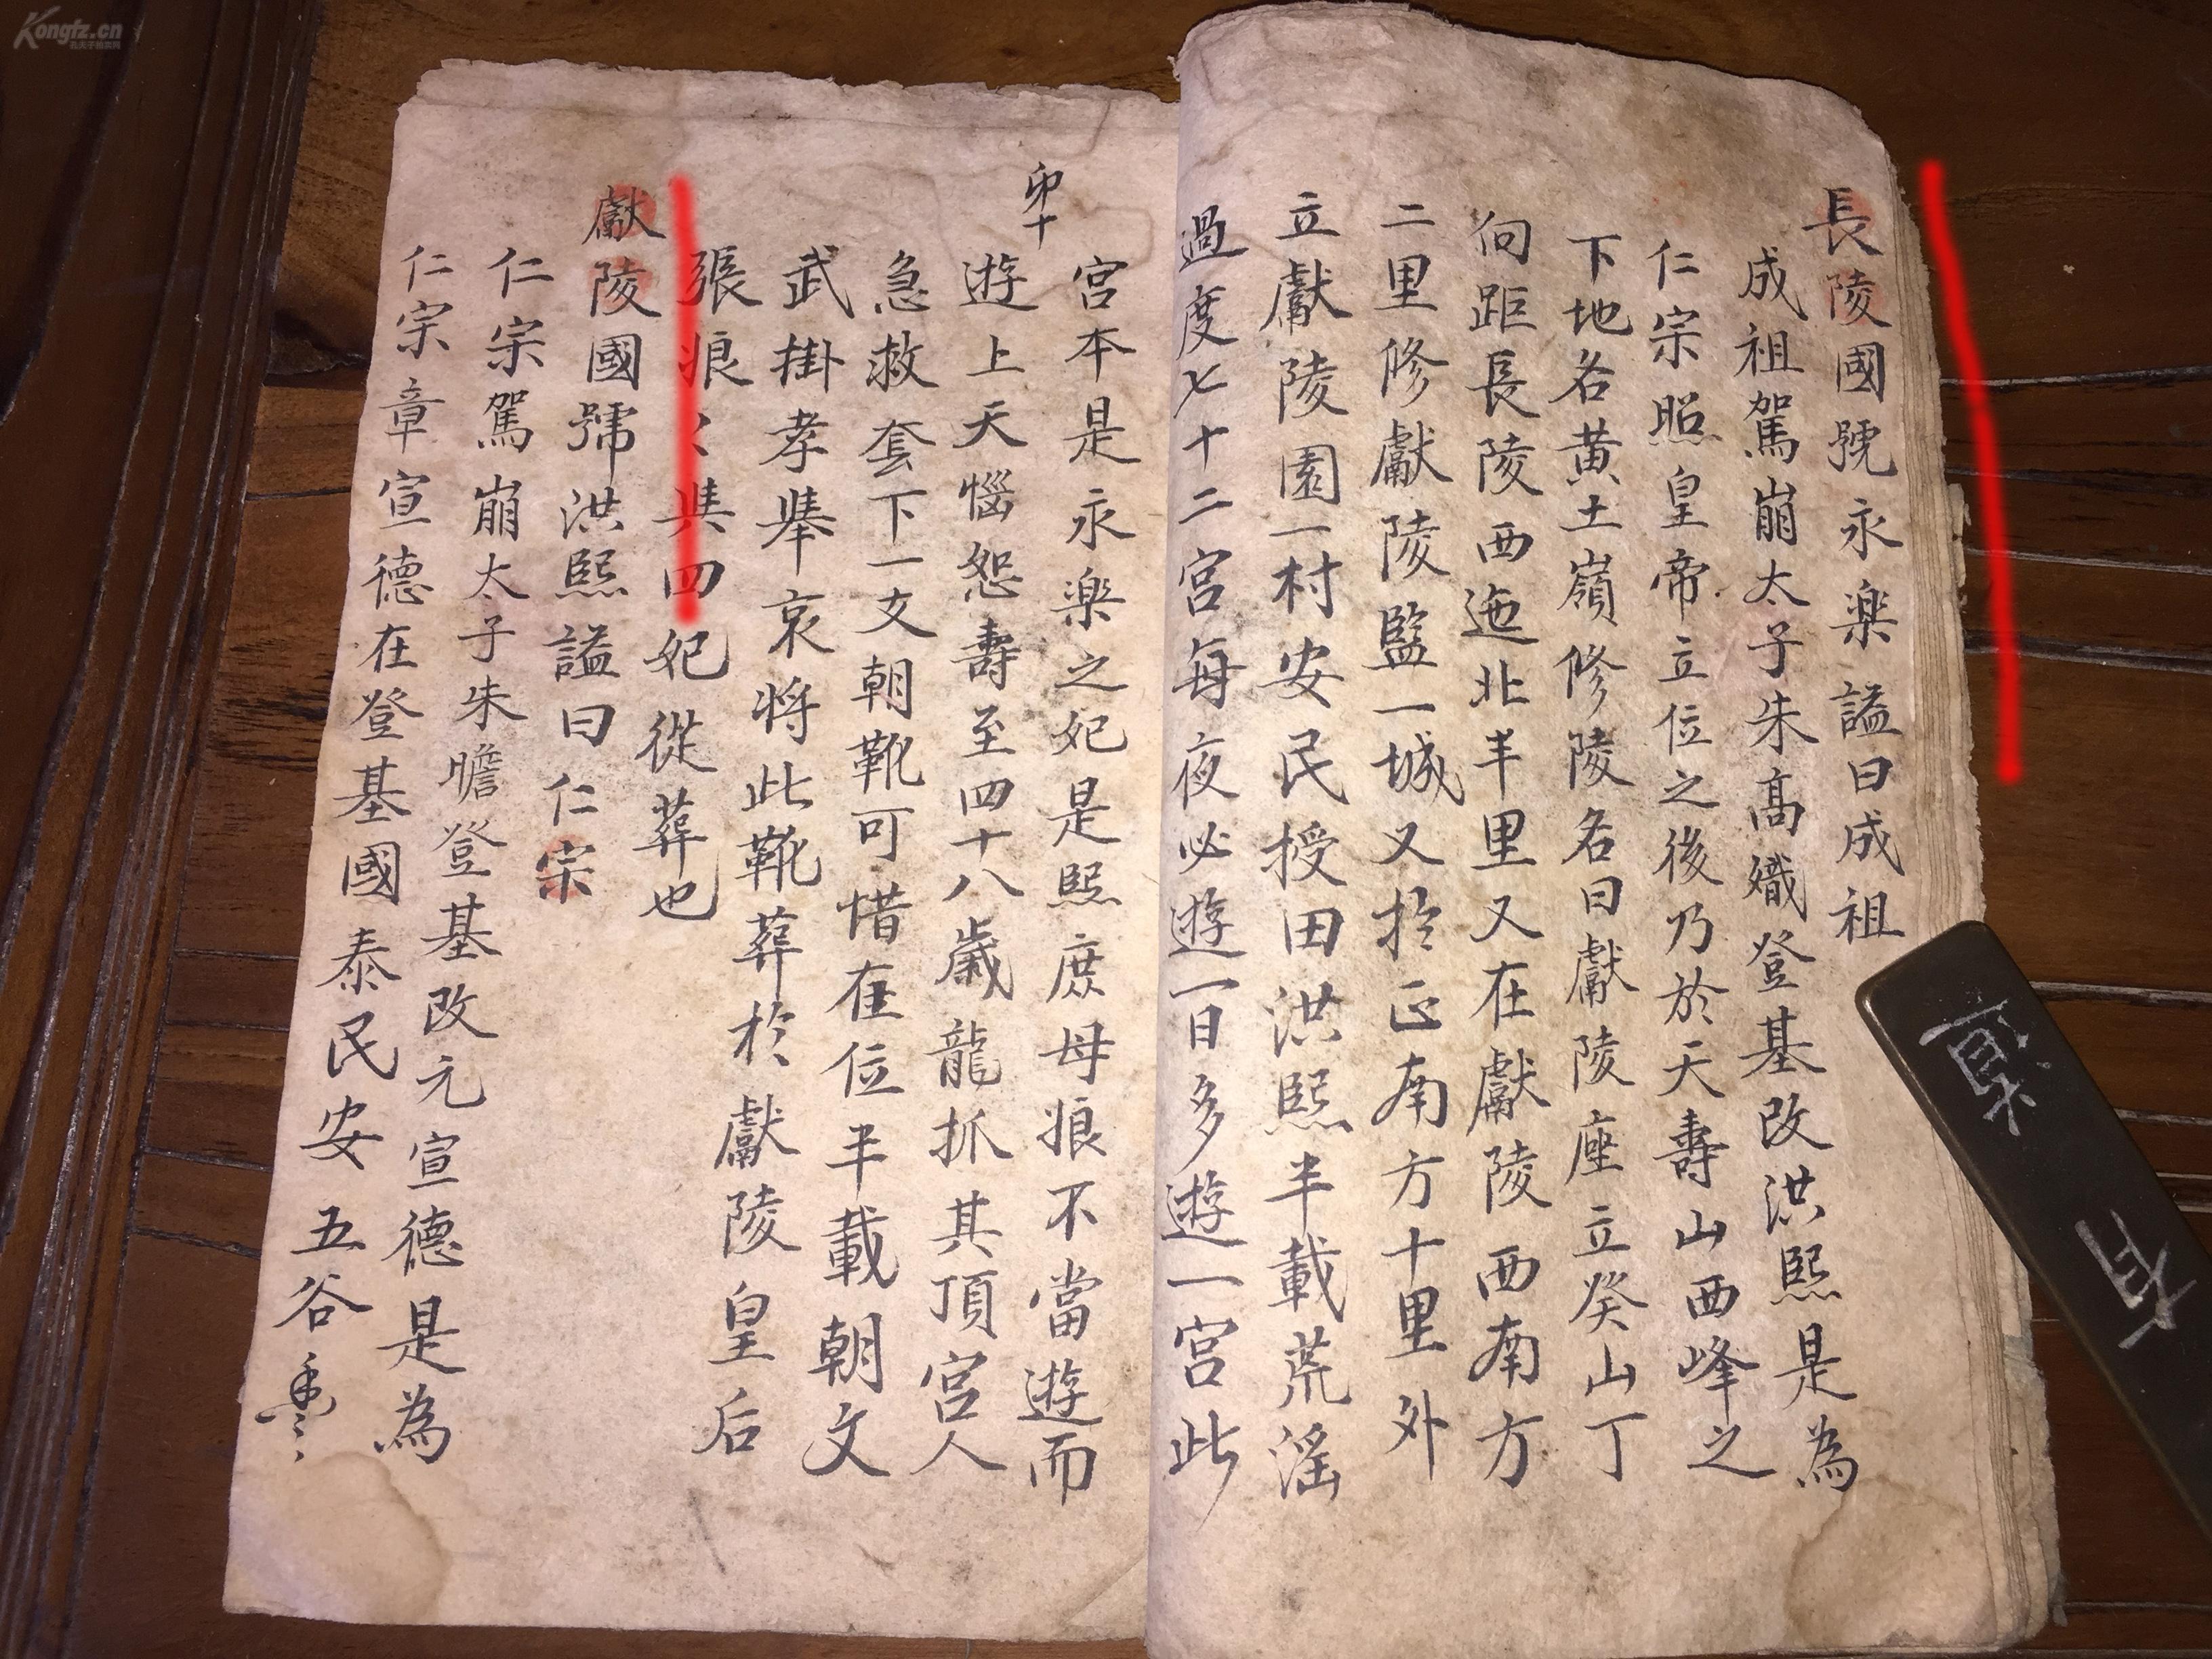 長陵國號永楽謚曰成祖
成祖駕崩太子朱髙熾登基改洪熙是為
仁宗照皇帝立位之後乃於天壽山西峰之
下地名黄土嶺修陵名曰獻陵座立癸山丁
向距長陵西迤北半里又在獻陵西南方
二里修獻陵監一城又扵正南方十里外
立獻陵園一村安民授田洪熙半載荒滛
過度七十二宫每夜必遊一日多遊一宫此
宫本是永楽之妃是熙庶母娘不當遊而
遊上天惱怒壽至四十八歲龍抓其頂宫人
急救套下一支朝靴可惜在位半載朝文
武掛孝舉哀將此靴葬扵獻陵皇后
張娘〻與四妃從葬也
獻陵國號洪熙謚曰仁宗
仁宗駕崩太子朱瞻登基改元宣德是為
仁宗章宣德在登基國泰民安五谷豊
Kongfz.cn
孔夫子拍卖网
真有